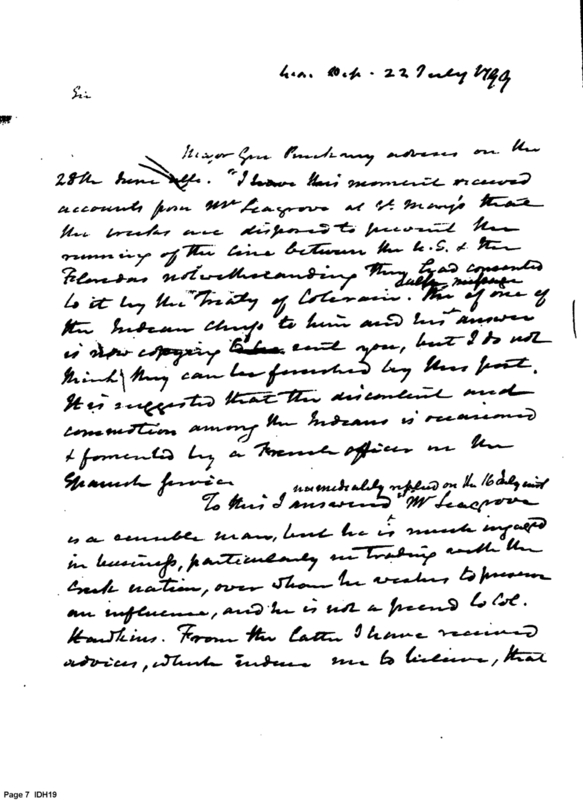 War. Dep. 22 July 1799
Sir
Major Gen Pinckney advises on the
28th June "I have this moment received
accounts from Mr Seagrove at St Mary's that
the creeks are disposed to prevent the
running of the line between the U.S. & the
Floridas notwithstanding they had consented
to it by the Treaty of Colerain. The message
of one of
the Indian chiefs to him and his answer
is now copying sent you, but I do not
think they can be furnished by this post.
It is suggested that the discontent and
commotion among the Indians is occasioned
& fomented by a French officer in the
Spanish service
immediately replied on the 16 July inst
To this I answered Mr Seagrove
is a sensible man, but he is much engaged
in business, particularly in trading with the
Creek nation, over whom he wishes to preserve
an influence, and he is not a friend to Col.
Hawkins. From the latter I have received
advices, which induce me to believe, that
Page 7 IDH19